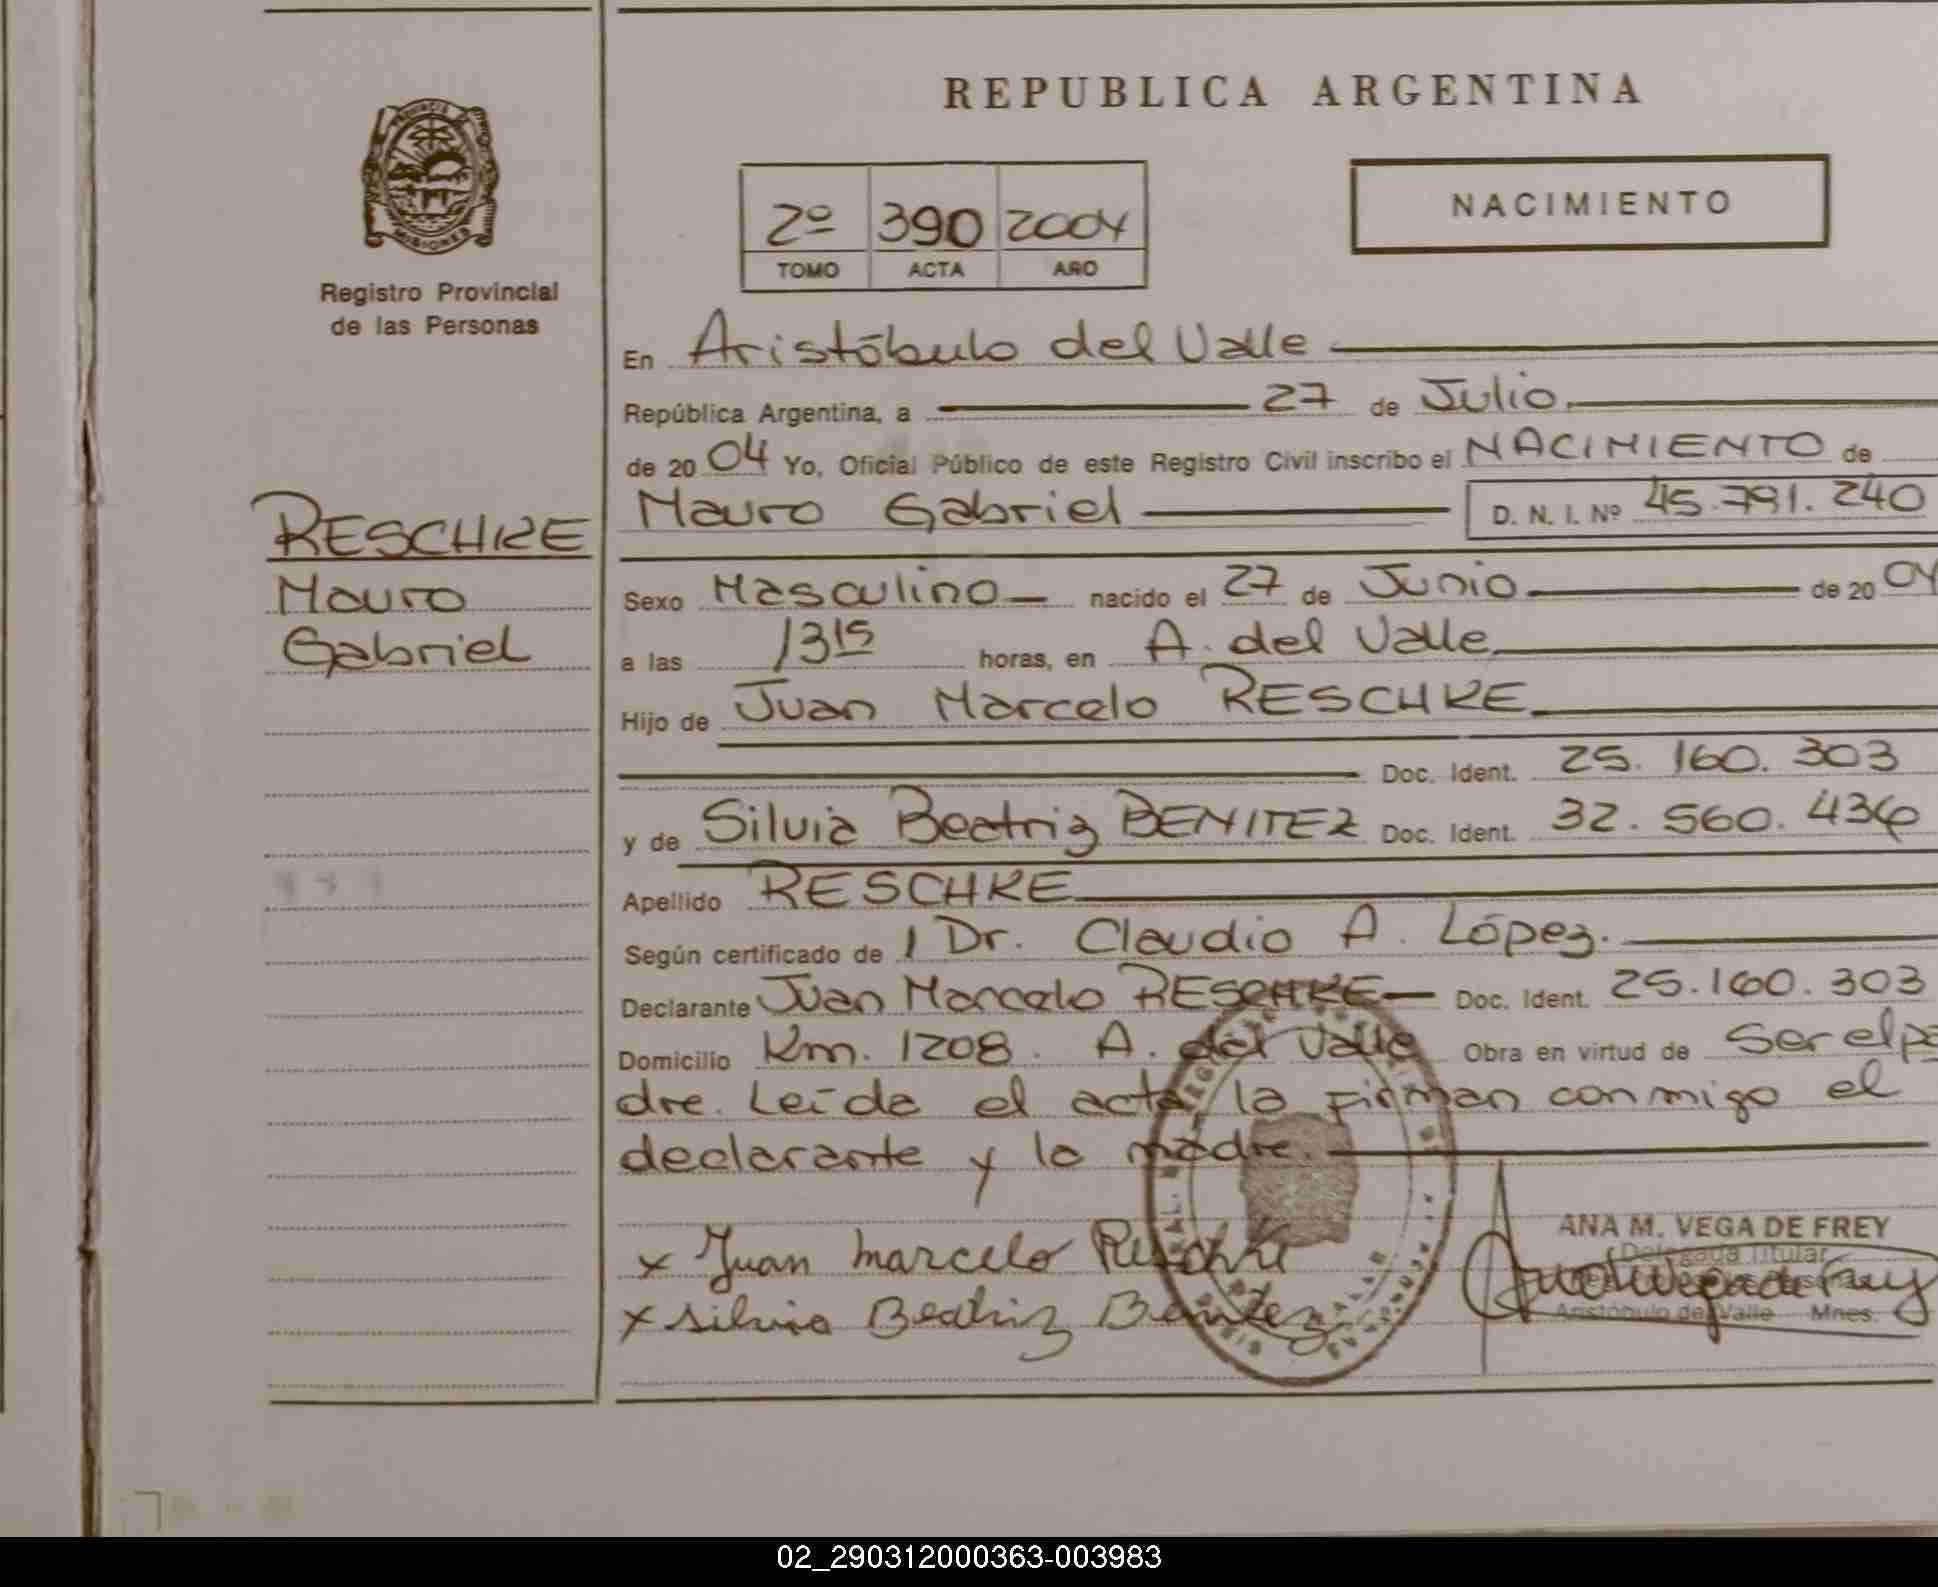 REPUBLICA ARGENTINA
NACIMIENTO
2º 390 2004
TOMO ACTA AÑO
PROVINCIA DE MISIONES
Registro Provincial
de las Personas
RESCHKE
Mauro
Gabriel
En Aristóbulo del Valle
República Argentina, a 27 de Julio
de 2004 Yo, Oficial Público de este Registro Civil inscribo el NACIMIENTO de
Mauro Gabriel D. N. I. Nº 45.791.240
Sexo Masculino nacido el 27 de Junio de 2004
a las 13 15 horas, en A. del Valle
Hijo de Juan Marcelo RESCHKE
Doc. Ident. 25.160.303
y de Silvia Beatriz BENITEZ Doc. Ident. 32.560.436
Apellido RESCHKE
Según certificado de Dr. Claudio A. López.
Declarante Juan Marcelo RESCHKE Doc. Ident. 25.160.303
Domicilio Km. 1208. A. del Valle Obra en virtud de Ser el pa
dre. Leída el acta, la firman conmigo el
declarante y la madre.
x Juan Marcelo Reschke
x Silvia Beatriz Benitez
ANA M. VEGA DE FREY
Delegada Titular
Aristóbulo del Valle Mnes.
02_290312000363-003983